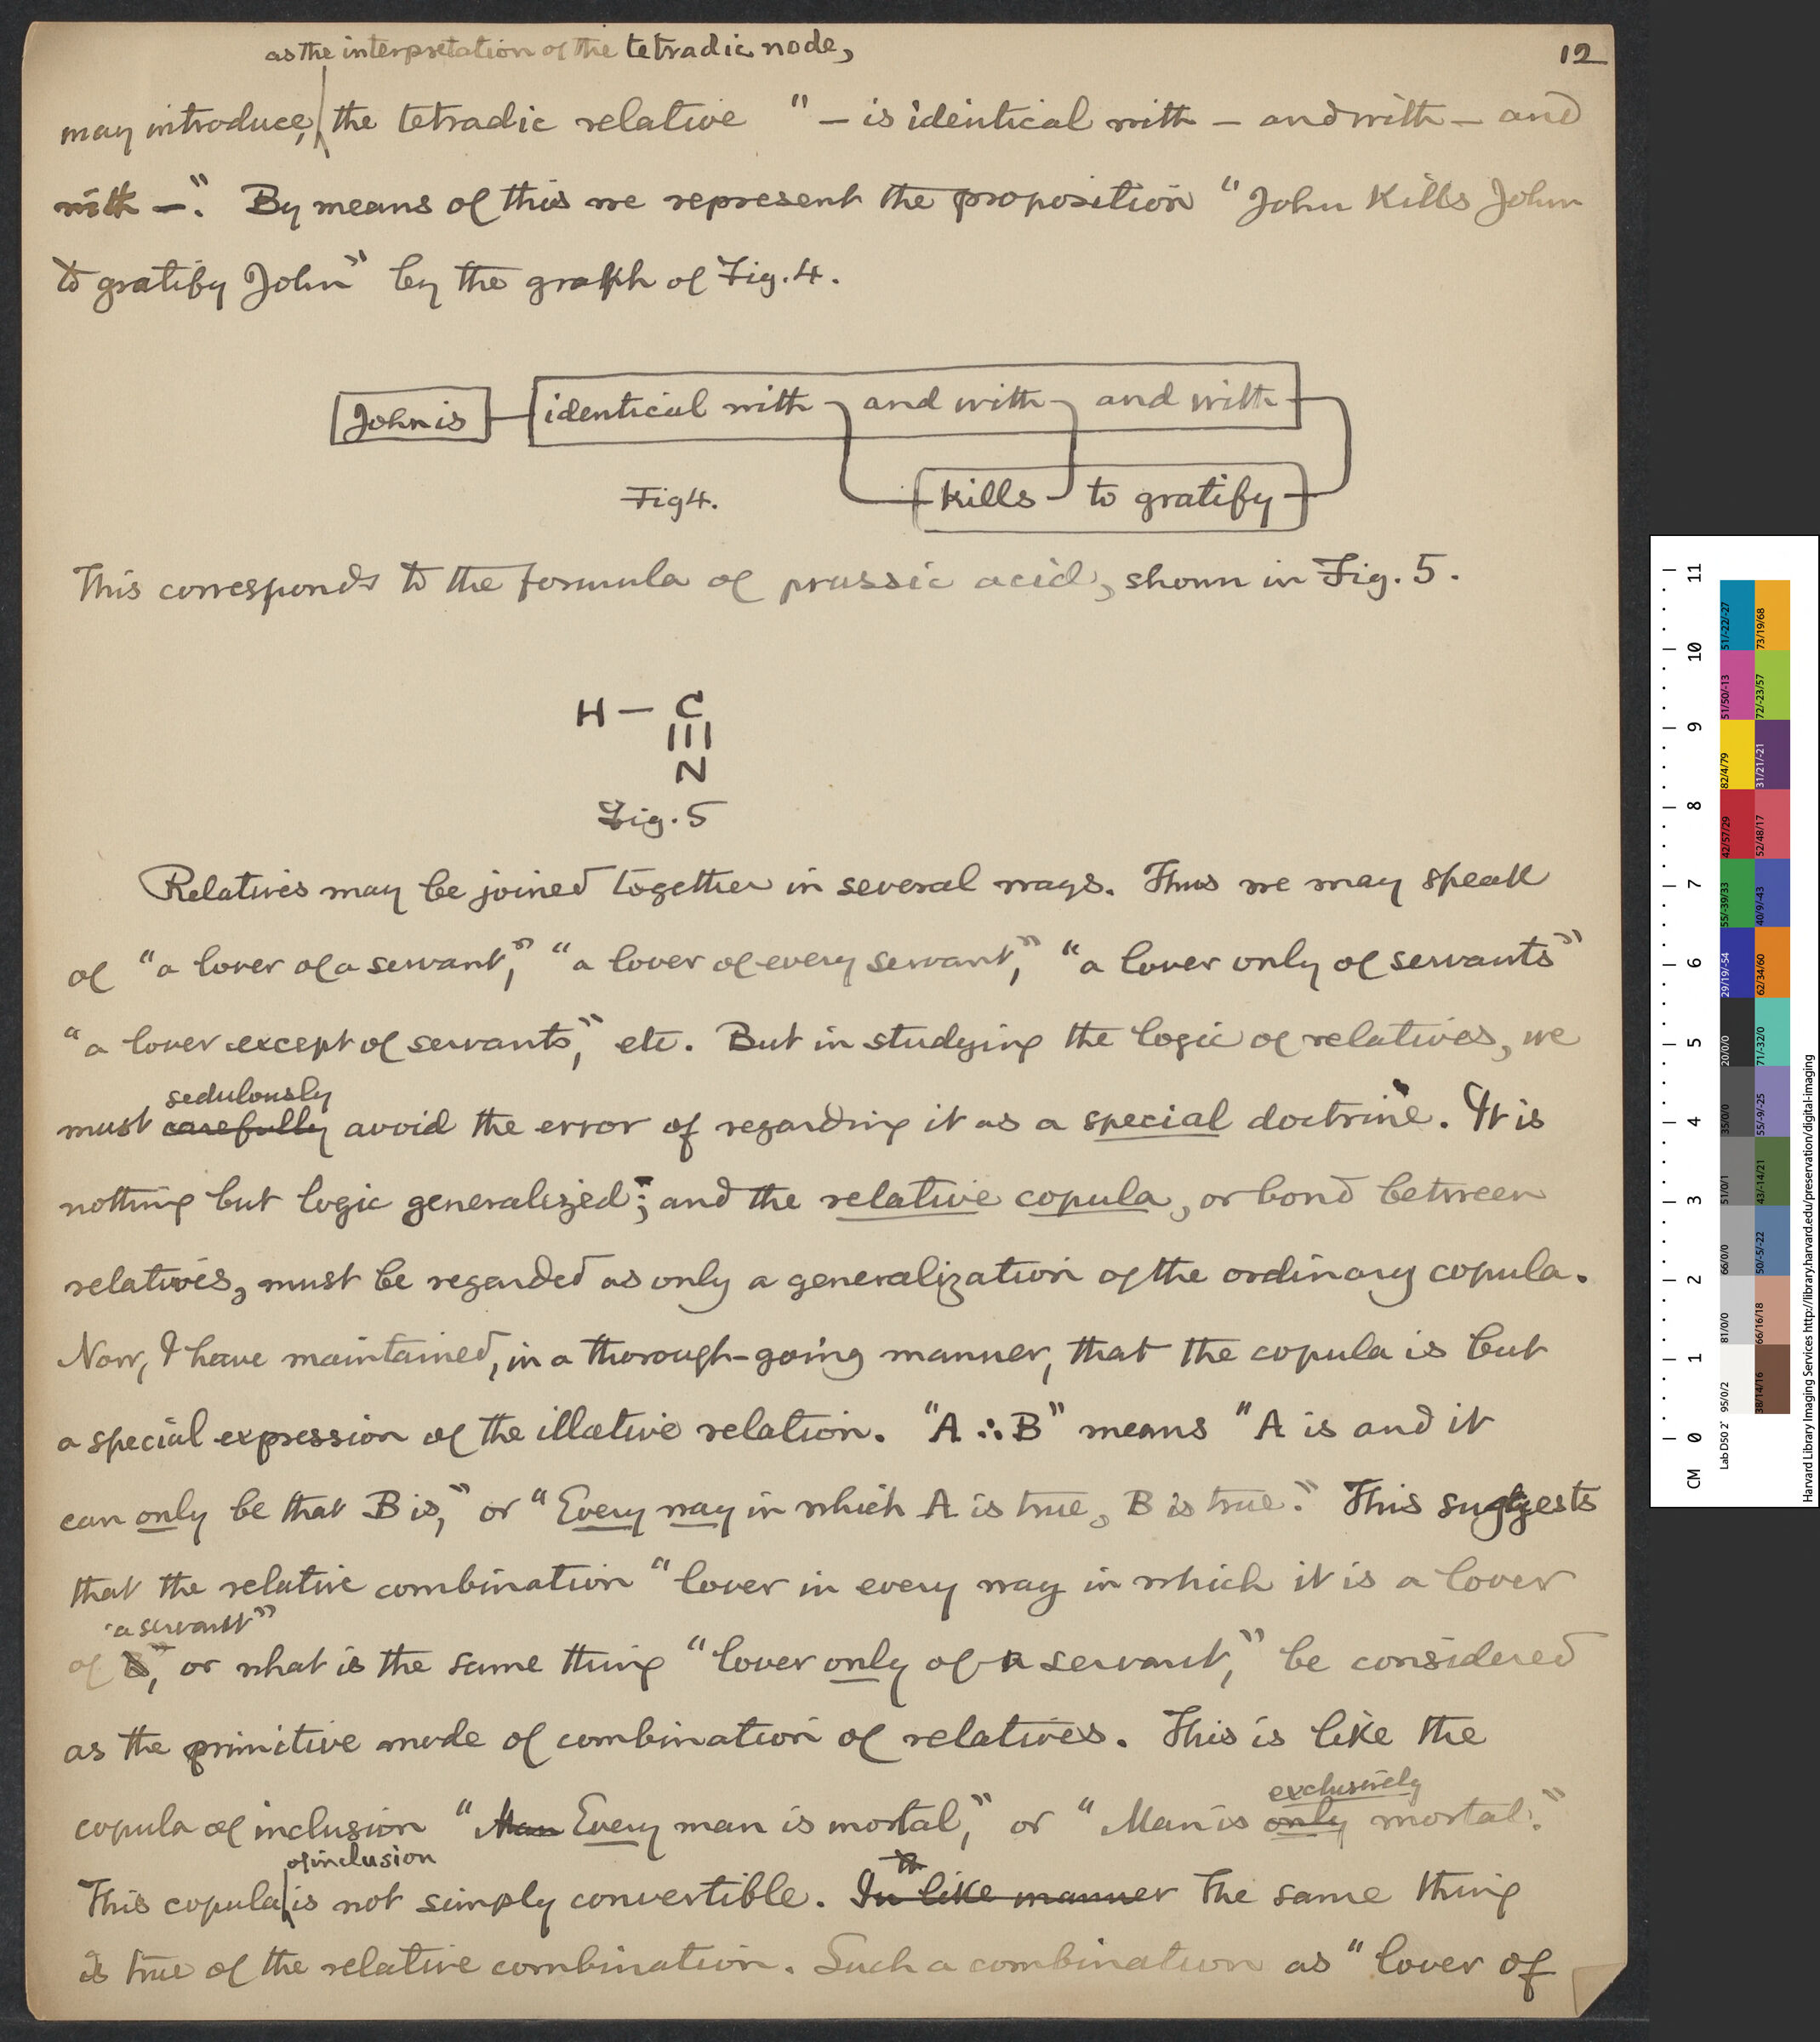 as the interpretation of the tetradic node,
12
may introduce, the tetradic relative "— is identical with — and with — and
with —." By means of this we represent the proposition "John kills John
to gratify John" by the graph of Fig. 4.
John is identical with and with and with
kills to gratify
Fig 4.
This corresponds to the formula of prussic acid, shown in Fig. 5.
H — C
|||
N
Fig. 5
Relatives may be joined together in several ways. Thus we may speak
of "a lover of a servant," "a lover of every servant," "a lover only of servants"
"a lover except of servants," etc. But in studying the logic of relatives, we
sedulously
must carefully avoid the error of regarding it as a special doctrine. It is
nothing but logic generalized; and the relative copula, or bond between
relatives, must be regarded as only a generalization of the ordinary copula.
Now, I have maintained, in a thorough-going manner, that the copula is but
a special expression of the illative relation. "A ∴ B" means "A is and it
can only be that B is," or "Every way in which A is true, B is true." This suggests
that the relative combination "lover in every way in which it is a lover
"a servant"
of " or what is the same thing "lover only of a servant," be considered
as the primitive mode of combination of relatives. This is like the
exclusively
copula of inclusion "Man Every man is mortal," or "Man is only mortal."
of inclusion
This copula is not simply convertible. In like manner The same thing
is true of the relative combination. Such a combination as "lover of
CM 0 1 2 3 4 5 6 7 8 9 10 11
Harvard Library Imaging Services http://library.harvard.edu/preservation/digital-imaging